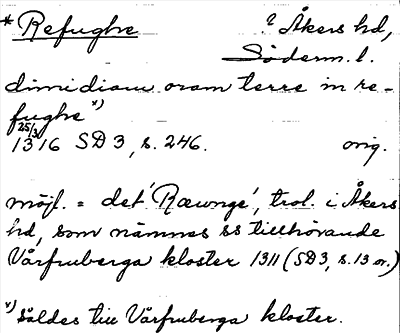 * Refughe ? Åkers hd,
Söderm. l.
dimidiam oram terre in re-
fughe x)
25/3
1316 SD 3, s. 246. orig.
möjl. = det 'Ræwnge', trol. i Åkers
hd, som nämnes ss tillhörande
Vårfruberga kloster 1311 (SD3, s. 13 or.)
x) Såldes till Vårfruberga kloster.